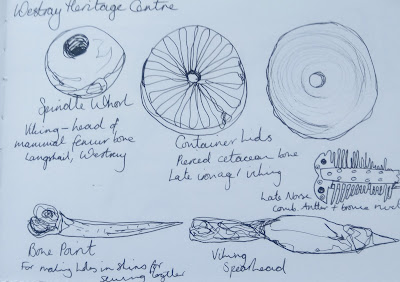 Westray Heritage Centre
Spindle Whorl
Viking - head of
mammal femur bone
Langskaill, Westray
Container Lids
Pierced cetacean bone
Late Iron age / Viking
Late Norse
Comb. Antler + bronze rivets
Bone Point
For making holes in skins for
sewing together
Viking
Spearhead